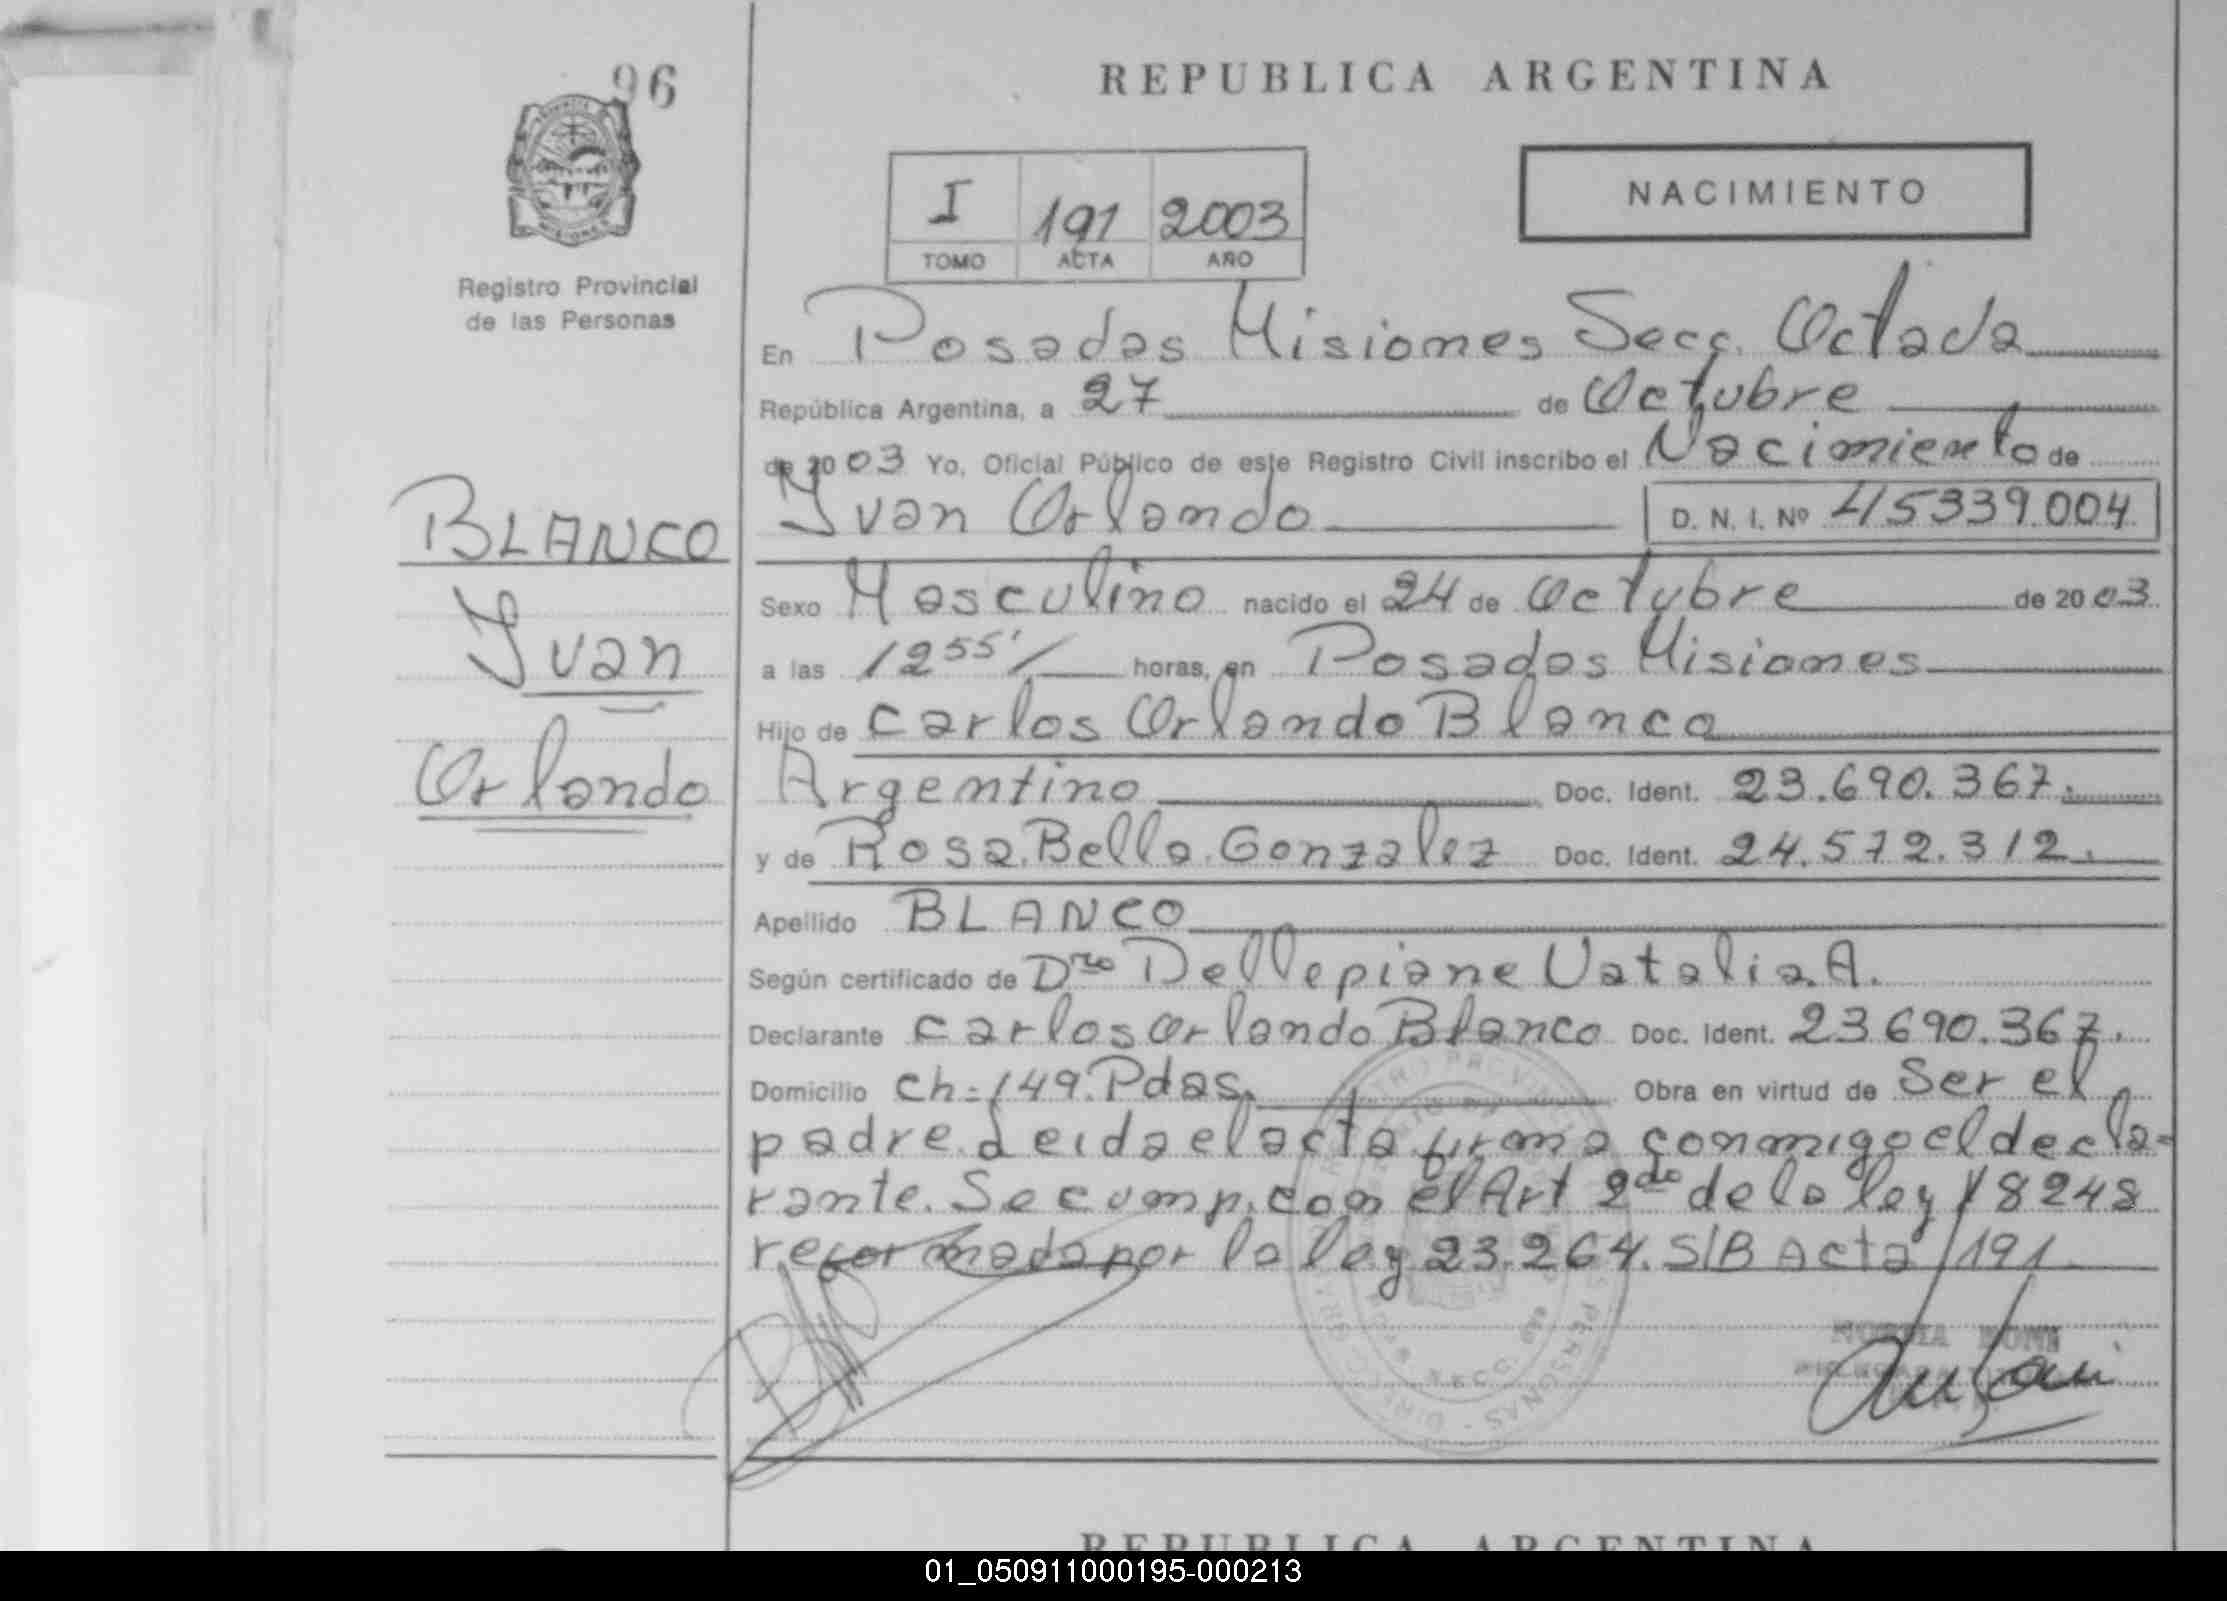 96
REPUBLICA ARGENTINA
NACIMIENTO
I 191 2003
TOMO ACTA AÑO
Registro Provincial
de las Personas
En Posadas Misiones Secc. Octava
República Argentina, a 27 de Octubre
de 2003 Yo, Oficial Público de este Registro Civil inscribo el Nacimiento de
Ivan Orlando D. N. I. Nº 45339.004
BLANCO
Ivan
Orlando
Sexo Masculino nacido el 24 de Octubre de 2003
a las 12 55' horas, en Posadas Misiones
Hijo de Carlos Orlando Blanco
Argentino Doc. Ident. 23.690.367.
y de Rosa Bella Gonzalez Doc. Ident. 24.572.312.
Apellido BLANCO
Según certificado de Dra Dellepiane Natalia A.
Declarante Carlos Orlando Blanco Doc. Ident. 23690.367.
Domicilio Ch=149 Pdas. Obra en virtud de Ser el
padre. Leida el acta firma conmigo el decla-
rante. Se cump. con el Art 2do de la ley 18248
reformada por la ley 23.264. S/B Acta 191
REPUBLICA ARGENTINA
01_050911000195-000213